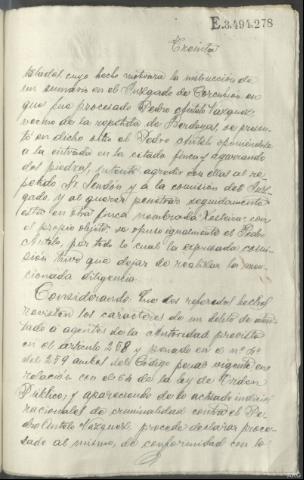 E.3.491.278
Treinta
citados, cuyo hecho motivara la instrucción de
un sumario en el Juzgado de Corcubión en
que fue procesado Pedro Antelo Vazquez,
vecino de la repetida de Bordoyas, se presen-
tó en dicho sitio el Pedro Antelo oponiéndose
a la entrada en la citada finca y agarrando
dos piedras, intentó agredir con ellas al re-
petido Sr. Lendón y á la comisión del Juz-
gado, y al querer penetrar seguidamente
esta en otra finca nombrada con
el propio objeto, se opuso igualmente el Pedro
Antelo, por todo lo cual la expresada comi-
sión tuvo que dejar de realizar la men-
cionada diligencia.
Considerando: Que los referidos hechos
revisten los caracteres de un delito de aten-
tado a agentes de la autoridad previsto
en el artículo 258 y penado en el nº 2º
del 259 ambos del Código penal vigente en
relación con el 64 de la ley de Orden
Público; y apareciendo de lo actuado indicios
racionales de criminalidad contra el Pe-
dro Antelo Vazquez, procede declarar proce-
sado al mismo, de conformidad con lo